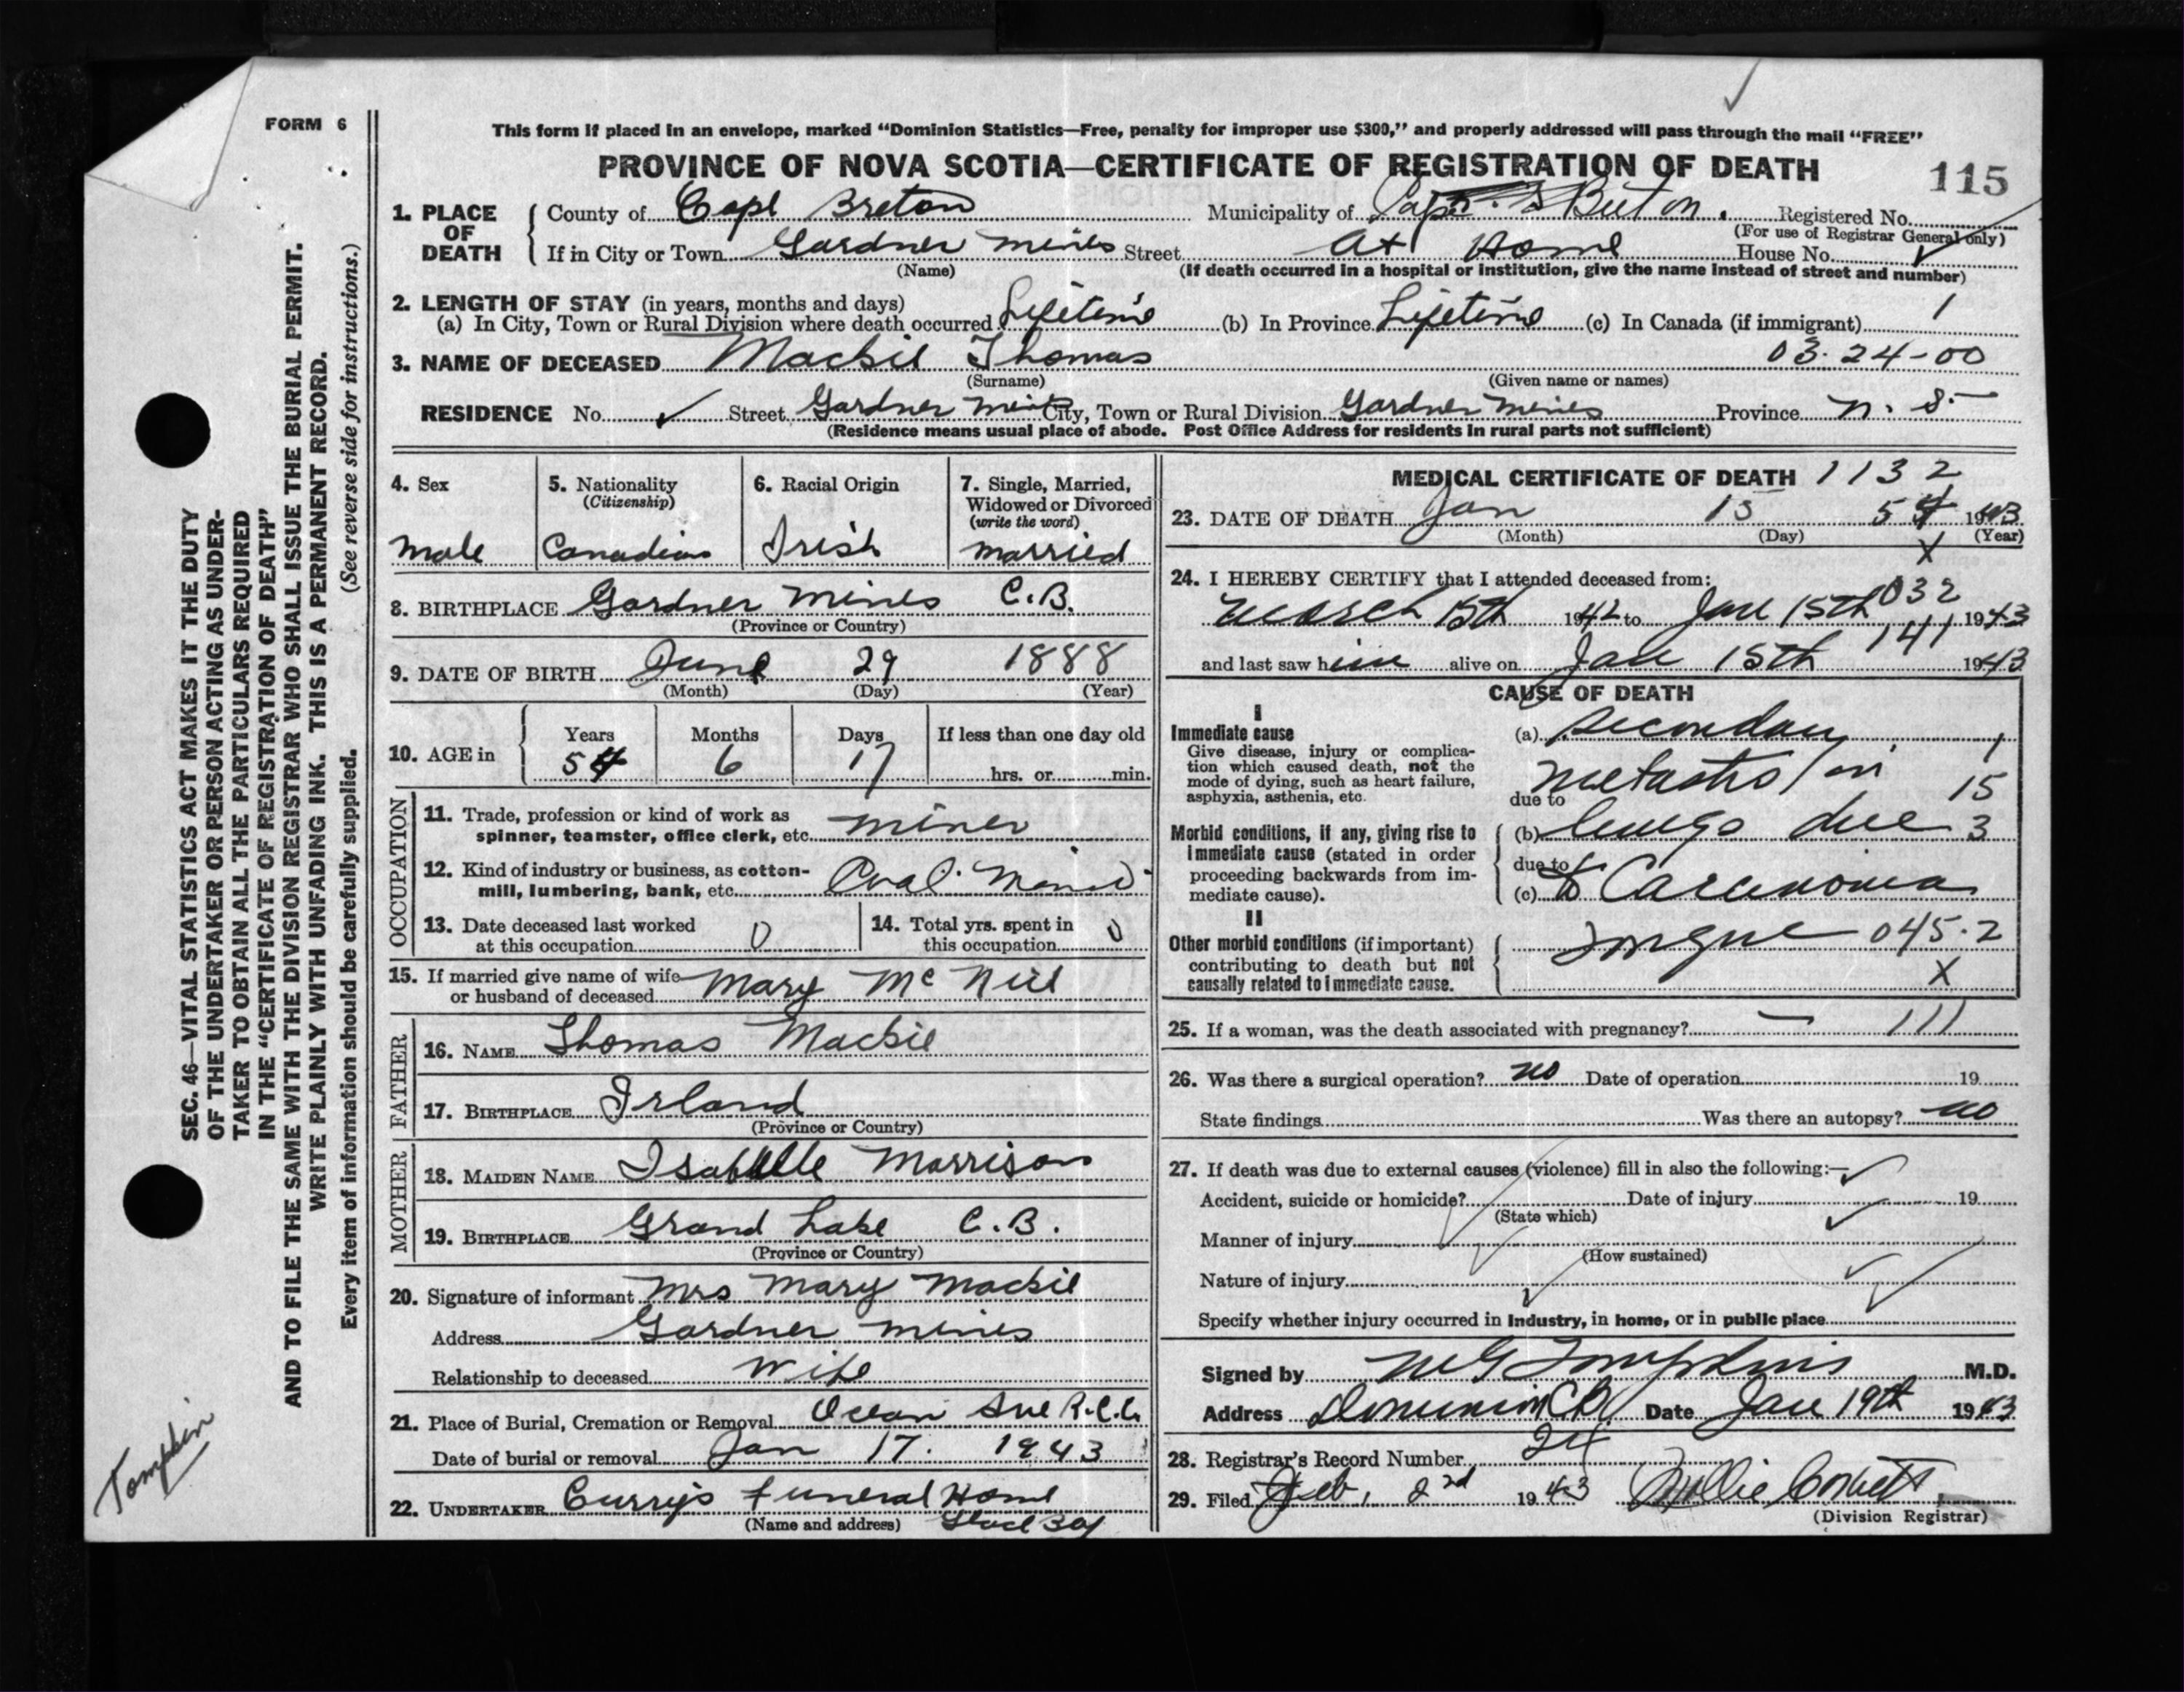 FORM 6
This form if placed in an envelope, marked “Dominion Statistics—Free, penalty for improper use $300,” and properly addressed will pass through the mail “FREE”
PROVINCE OF NOVA SCOTIA—CERTIFICATE OF REGISTRATION OF DEATH
115
1. PLACE OF DEATH
County of Cape Breton Municipality of Cape Breton. Registered No.
(For use of Registrar General only)
If in City or Town Gardner Mines Street At Home House No.
(Name) (If death occurred in a hospital or institution, give the name instead of street and number)
2. LENGTH OF STAY (in years, months and days)
(a) In City, Town or Rural Division where death occurred Lifetime (b) In Province Lifetime (c) In Canada (if immigrant) 1
3. NAME OF DECEASED Mackie Thomas 03-24-00
(Surname) (Given name or names)
RESIDENCE No. Street Gardner Mines City, Town or Rural Division Gardner Mines Province N. S.
(Residence means usual place of abode. Post Office Address for residents in rural parts not sufficient)
4. Sex
Male
5. Nationality
(Citizenship)
Canadian
6. Racial Origin
Irish
7. Single, Married,
Widowed or Divorced
(write the word)
married
8. BIRTHPLACE Gardner Mines C.B.
(Province or Country)
9. DATE OF BIRTH June 29 1888
(Month) (Day) (Year)
10. AGE in
Years Months Days If less than one day old
54 6 17 hrs. or min.
OCCUPATION
11. Trade, profession or kind of work as
spinner, teamster, office clerk, etc. miner
12. Kind of industry or business, as cotton-
mill, lumbering, bank, etc. Coal
13. Date deceased last worked
at this occupation 0
14. Total yrs. spent in
this occupation 0
15. If married give name of wife
or husband of deceased Mary McNeil
FATHER
16. NAME Thomas Mackie
17. BIRTHPLACE Irland
(Province or Country)
MOTHER
18. MAIDEN NAME Isabelle Morrison
19. BIRTHPLACE Grand Lake C.B.
(Province or Country)
20. Signature of informant Mrs Mary Mackie
Address Gardner Mines
Relationship to deceased Wife
21. Place of Burial, Cremation or Removal Ocean Ave R.C.C.
Date of burial or removal Jan 17. 1943
22. UNDERTAKER Curry's Funeral Home
(Name and address) Glace Bay
MEDICAL CERTIFICATE OF DEATH 1132
23. DATE OF DEATH Jan 15 54 1943
(Month) (Day) (Year)
X
24. I HEREBY CERTIFY that I attended deceased from:
March 15th 1942 to Jan 15th 1943
032
and last saw him alive on Jan 15th 1943
141
CAUSE OF DEATH
I
Immediate cause
Give disease, injury or complica-
tion which caused death, not the
mode of dying, such as heart failure,
asphyxia, asthenia, etc.
(a) Secondary 1
metastas in 15
due to
Morbid conditions, if any, giving rise to
immediate cause (stated in order
proceeding backwards from im-
mediate cause).
(b) lungs due 3
due to
(c) to Carcinoma
II
Other morbid conditions (if important)
contributing to death but not
causally related to immediate cause.
Tongue 045.2
X
25. If a woman, was the death associated with pregnancy? — 111
26. Was there a surgical operation? no Date of operation 19
State findings Was there an autopsy? no
27. If death was due to external causes (violence) fill in also the following:—
Accident, suicide or homicide? Date of injury 19
(State which)
Manner of injury
(How sustained)
Nature of injury
Specify whether injury occurred in Industry, in home, or in public place
Signed by M G Tompkins M.D.
Address Dominion C.B. Date Jan 19th 1943
28. Registrar's Record Number 24
29. Filed Feb. 2nd 1943 Mollie Corbett
(Division Registrar)
SEC. 46—VITAL STATISTICS ACT MAKES IT THE DUTY
OF THE UNDERTAKER OR PERSON ACTING AS UNDER-
TAKER TO OBTAIN ALL THE PARTICULARS REQUIRED
IN THE “CERTIFICATE OF REGISTRATION OF DEATH”
AND TO FILE THE SAME WITH THE DIVISION REGISTRAR WHO SHALL ISSUE THE BURIAL PERMIT.
WRITE PLAINLY WITH UNFADING INK. THIS IS A PERMANENT RECORD.
Every item of information should be carefully supplied. (See reverse side for instructions.)
Tompkin